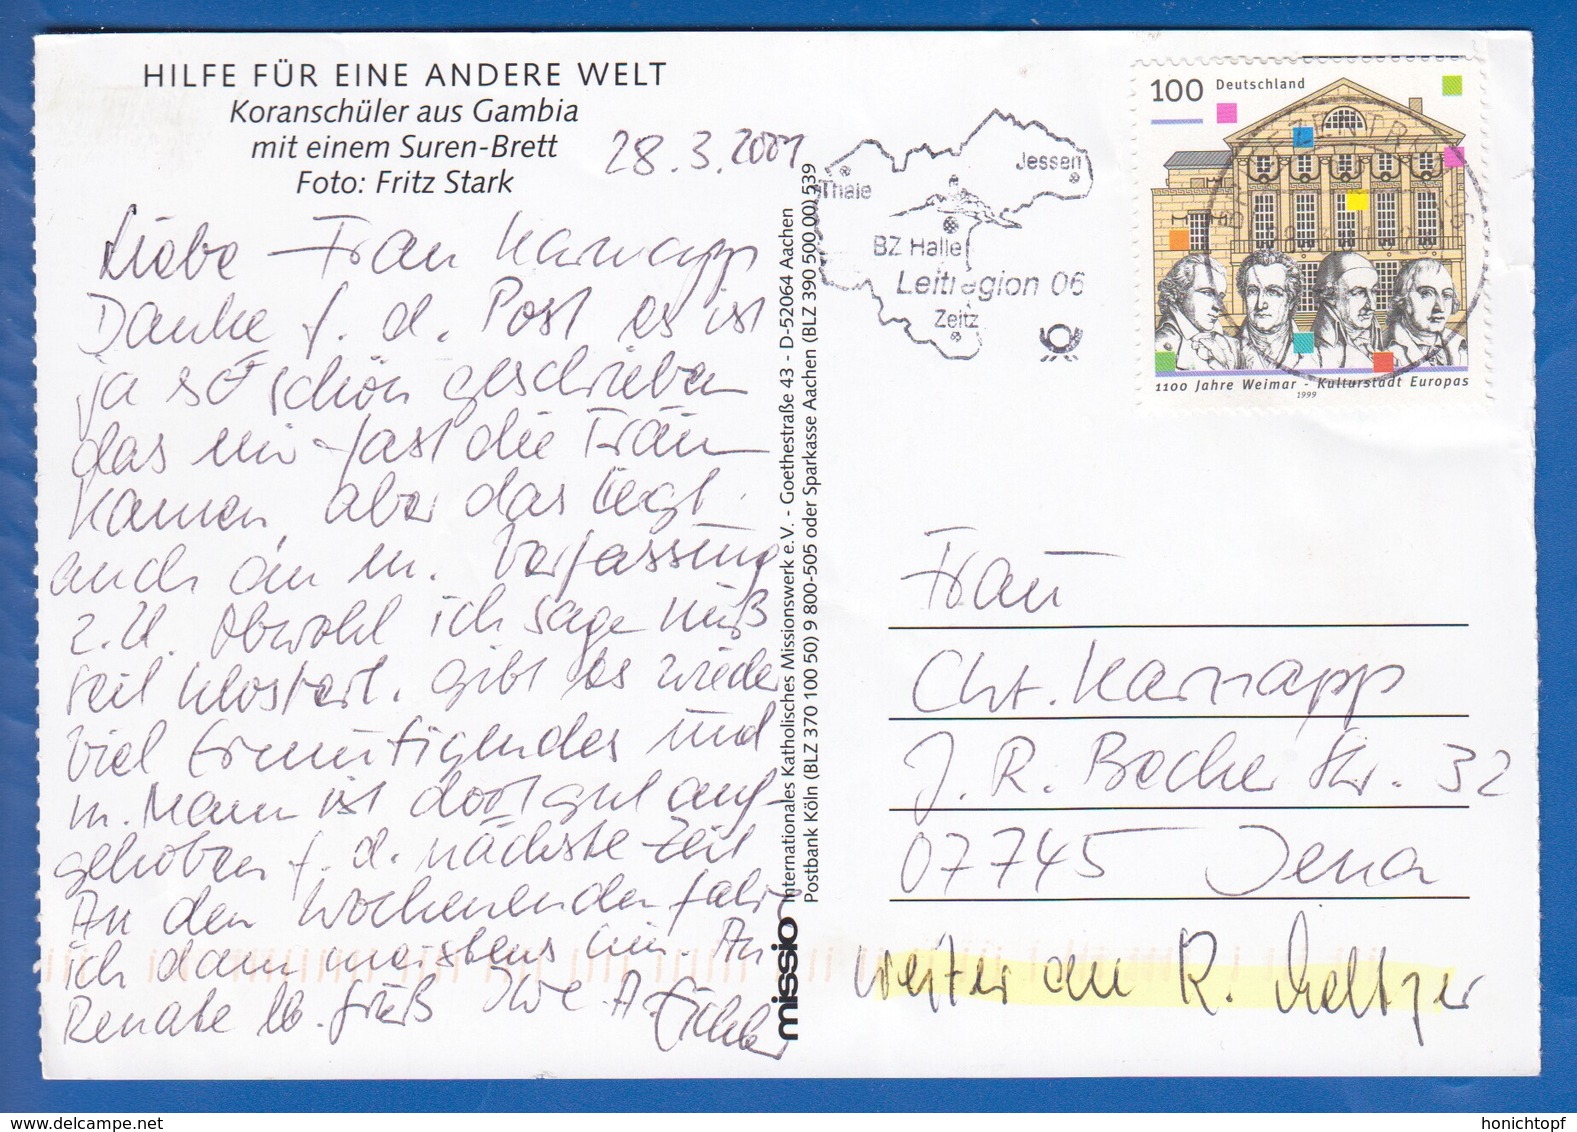 HILFE FÜR EINE ANDERE WELT
Koranschüler aus Gambia
mit einem Suren-Brett
Foto: Fritz Stark
28.3.2001
Liebe Frau Karnapp
Danke f. d. Post es ist
ja so schön geschrieben
das mir fast die Trän
kamen, aber das liegt
auch an m. Verfassung
z. Zt. Obwohl ich sagen muß
seit Klostert. gibt es wieder
viel Ermutigendes und
m. Mann ist dort gut auf-
gehoben f. d. nächste Zeit
An den Wochenenden fahr
ich dann meistens hin. An
Renate lb. Gruß Ihre A.
missio Internationales Katholisches Missionswerk e.V. - Goethestraße 43 - D-52064 Aachen
Postbank Köln (BLZ 370 100 50) 9 800-505 oder Sparkasse Aachen (BLZ 390 500 00) 539
Thale
Jessen
BZ Halle
Leitregion 06
Zeitz
100 Deutschland
1100 Jahre Weimar - Kulturstadt Europas
1999
Frau
Chr. Karnapp
J. R. Becher Str. 32
07745 Jena
weiter an R. Meltzer
www.delcampe.net
honichtopf